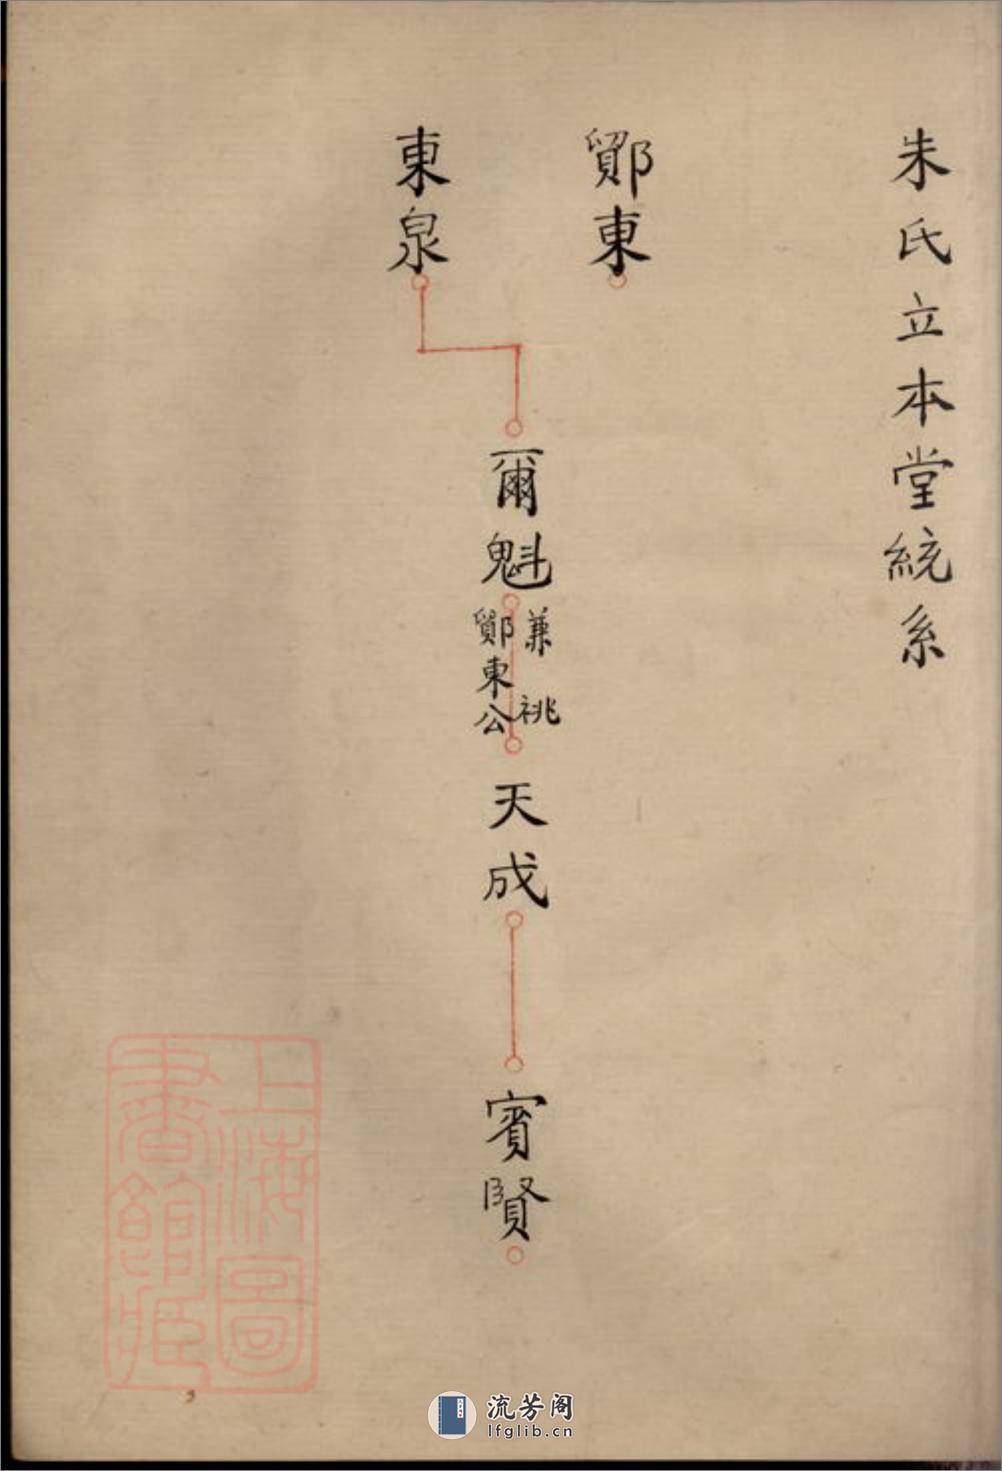 朱氏立本堂統系
鄮東
東泉
爾魁
兼祧
鄮東公
天成
賓賢
上海圖
書館藏
流芳阁
lfglib.cn